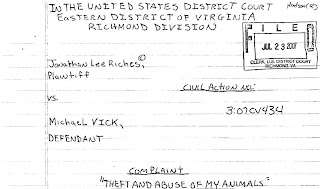 IN THE UNITED STATES DISTRICT COURT
EASTERN DISTRICT OF VIRGINIA
RICHMOND DIVISION
FILE
JUL 23 2007
CLERK, U.S. DISTRICT COURT
RICHMOND, VA
Jonathan Lee Riches©
Plaintiff
CIVIL ACTION NO:
vs.
3:07CV434
Michael VICK,
DEFENDANT
COMPLAINT
"THEFT AND ABUSE OF MY ANIMALS"